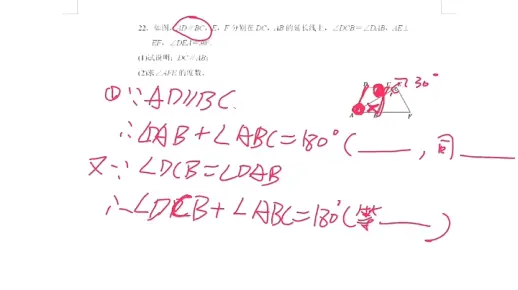 22. 如图，AD∥BC，E，F 分别在 DC，AB 的延长线上，∠DCB＝∠DAB，AE⊥
EF，∠DEA＝30°.
(1)试说明：DC∥AB；
(2)求∠AFE 的度数.
30°
①∵AD∥BC.
∴∠DAB+∠ABC=180°(____，同____
又∵∠DCB=∠DAB
∴∠DCB+∠ABC=180°(等____)